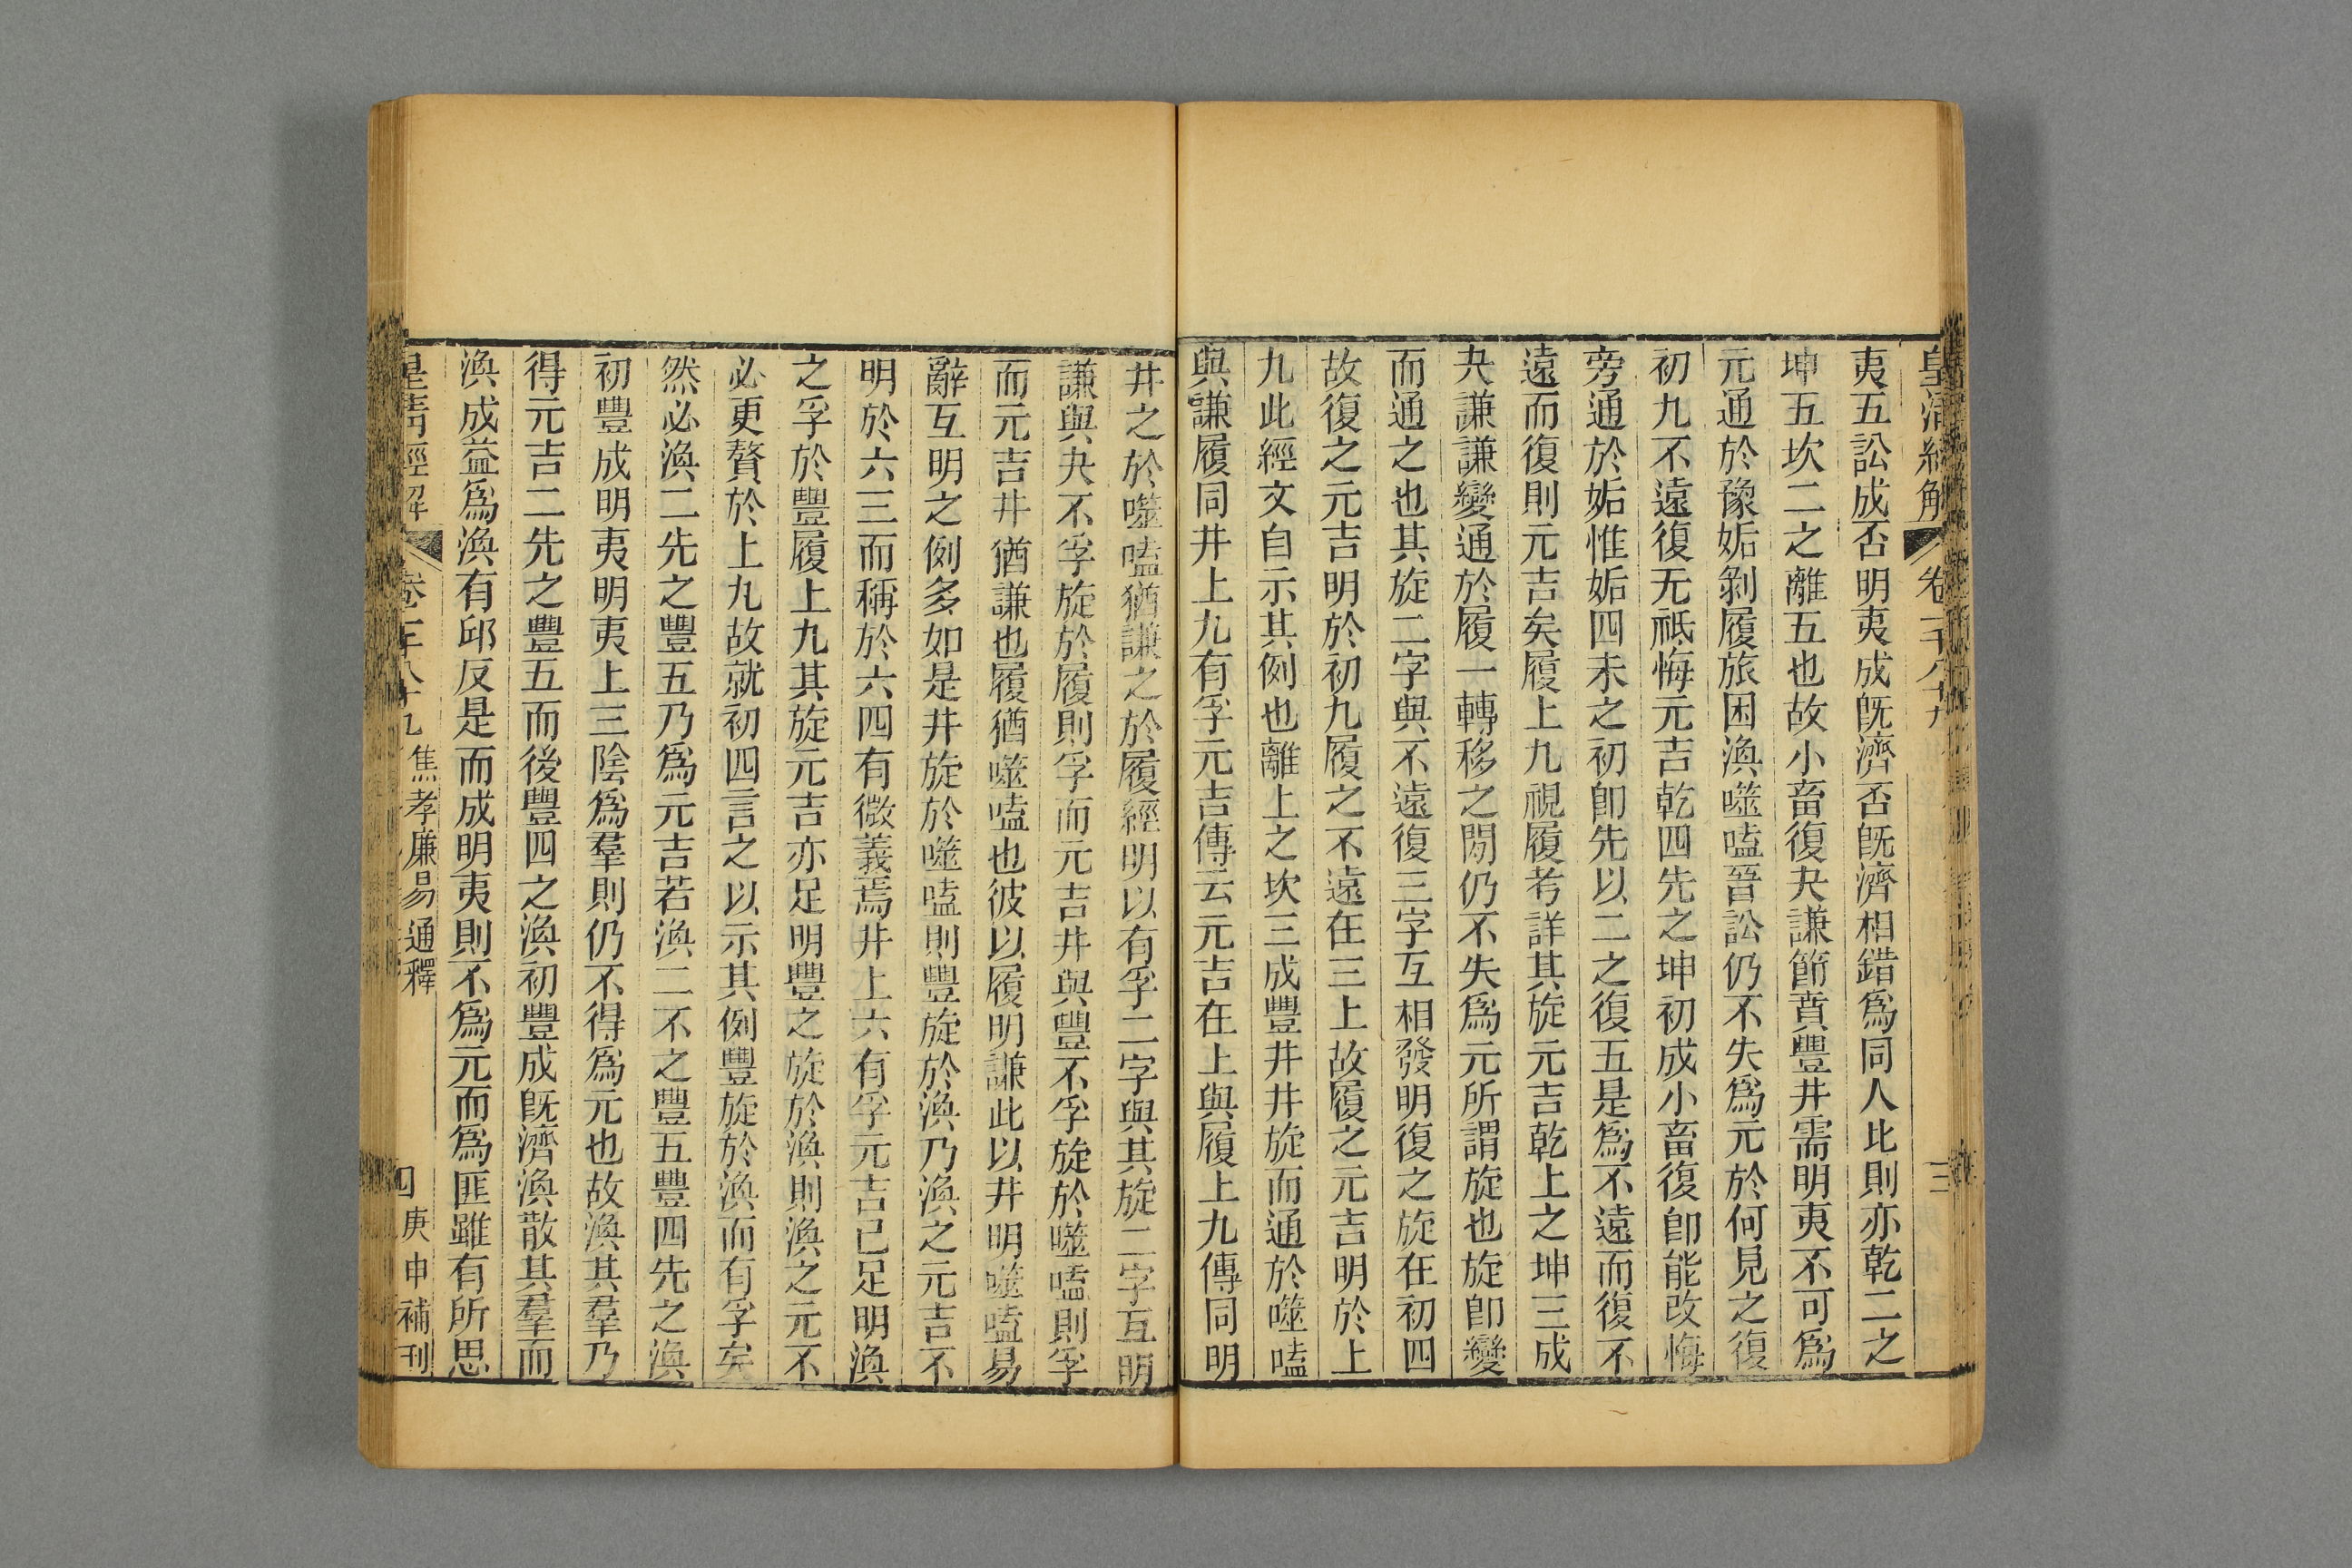 皇清經解 卷一千八十九 三
夷五訟成否明夷成旣濟否旣濟相錯爲同人比則亦乾二之
坤五坎二之離五也故小畜復夬謙節賁豐井需明夷不可爲
元通於豫姤剝履旅困渙噬嗑晉訟仍不失爲元於何見之復
初九不遠復无祇悔元吉乾四先之坤初成小畜復卽能改悔
旁通於姤惟姤四未之初卽先以二之復五是爲不遠而復不
遠而復則元吉矣履上九視履考詳其旋元吉乾上之坤三成
夬謙謙變通於履一轉移之閒仍不失爲元所謂旋也旋卽變
而通之也其旋二字與不遠復三字互相發明復之旋在初四
故復之元吉明於初九履之不遠在三上故履之元吉明於上
九此經文自示其例也離上之坎三成豐井井旋而通於噬嗑
與謙履同井上九有孚元吉傳云元吉在上與履上九傳同明
井之於噬嗑猶謙之於履經明以有孚二字與其旋二字互明
謙與夬不孚旋於履則孚而元吉井與豐不孚旋於噬嗑則孚
而元吉井猶謙也履猶噬嗑也彼以履明謙此以井明噬嗑易
辭互明之例多如是井旋於噬嗑則豐旋於渙乃渙之元吉不
明於六三而稱於六四有微義焉井上六有孚元吉已足明渙
之孚於豐履上九其旋元吉亦足明豐之旋於渙則渙之元不
必更贅於上九故就初四言之以示其例豐旋於渙而有孚矣
然必渙二先之豐五乃爲元吉若渙二不之豐五豐四先之渙
初豐成明夷明夷上三陰爲羣則仍不得爲元也故渙其羣乃
得元吉二先之豐五而後豐四之渙初豐成旣濟渙散其羣而
渙成益爲渙有邱反是而成明夷則不爲元而爲匪雖有所思
皇淸經解 卷一千八十九 焦孝廉易通釋 四 庚申補刊